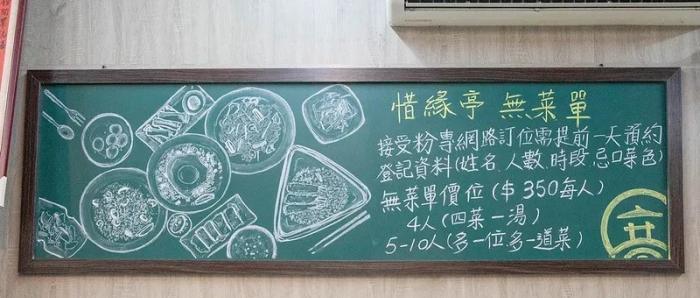 惜緣亭 無菜單
接受粉專網路訂位需提前一天預約
登記資料(姓名、人數、時段、忌口菜色)
無菜單價位($350每人)
4人(四菜一湯)
5-10人(多一位、多一道菜)